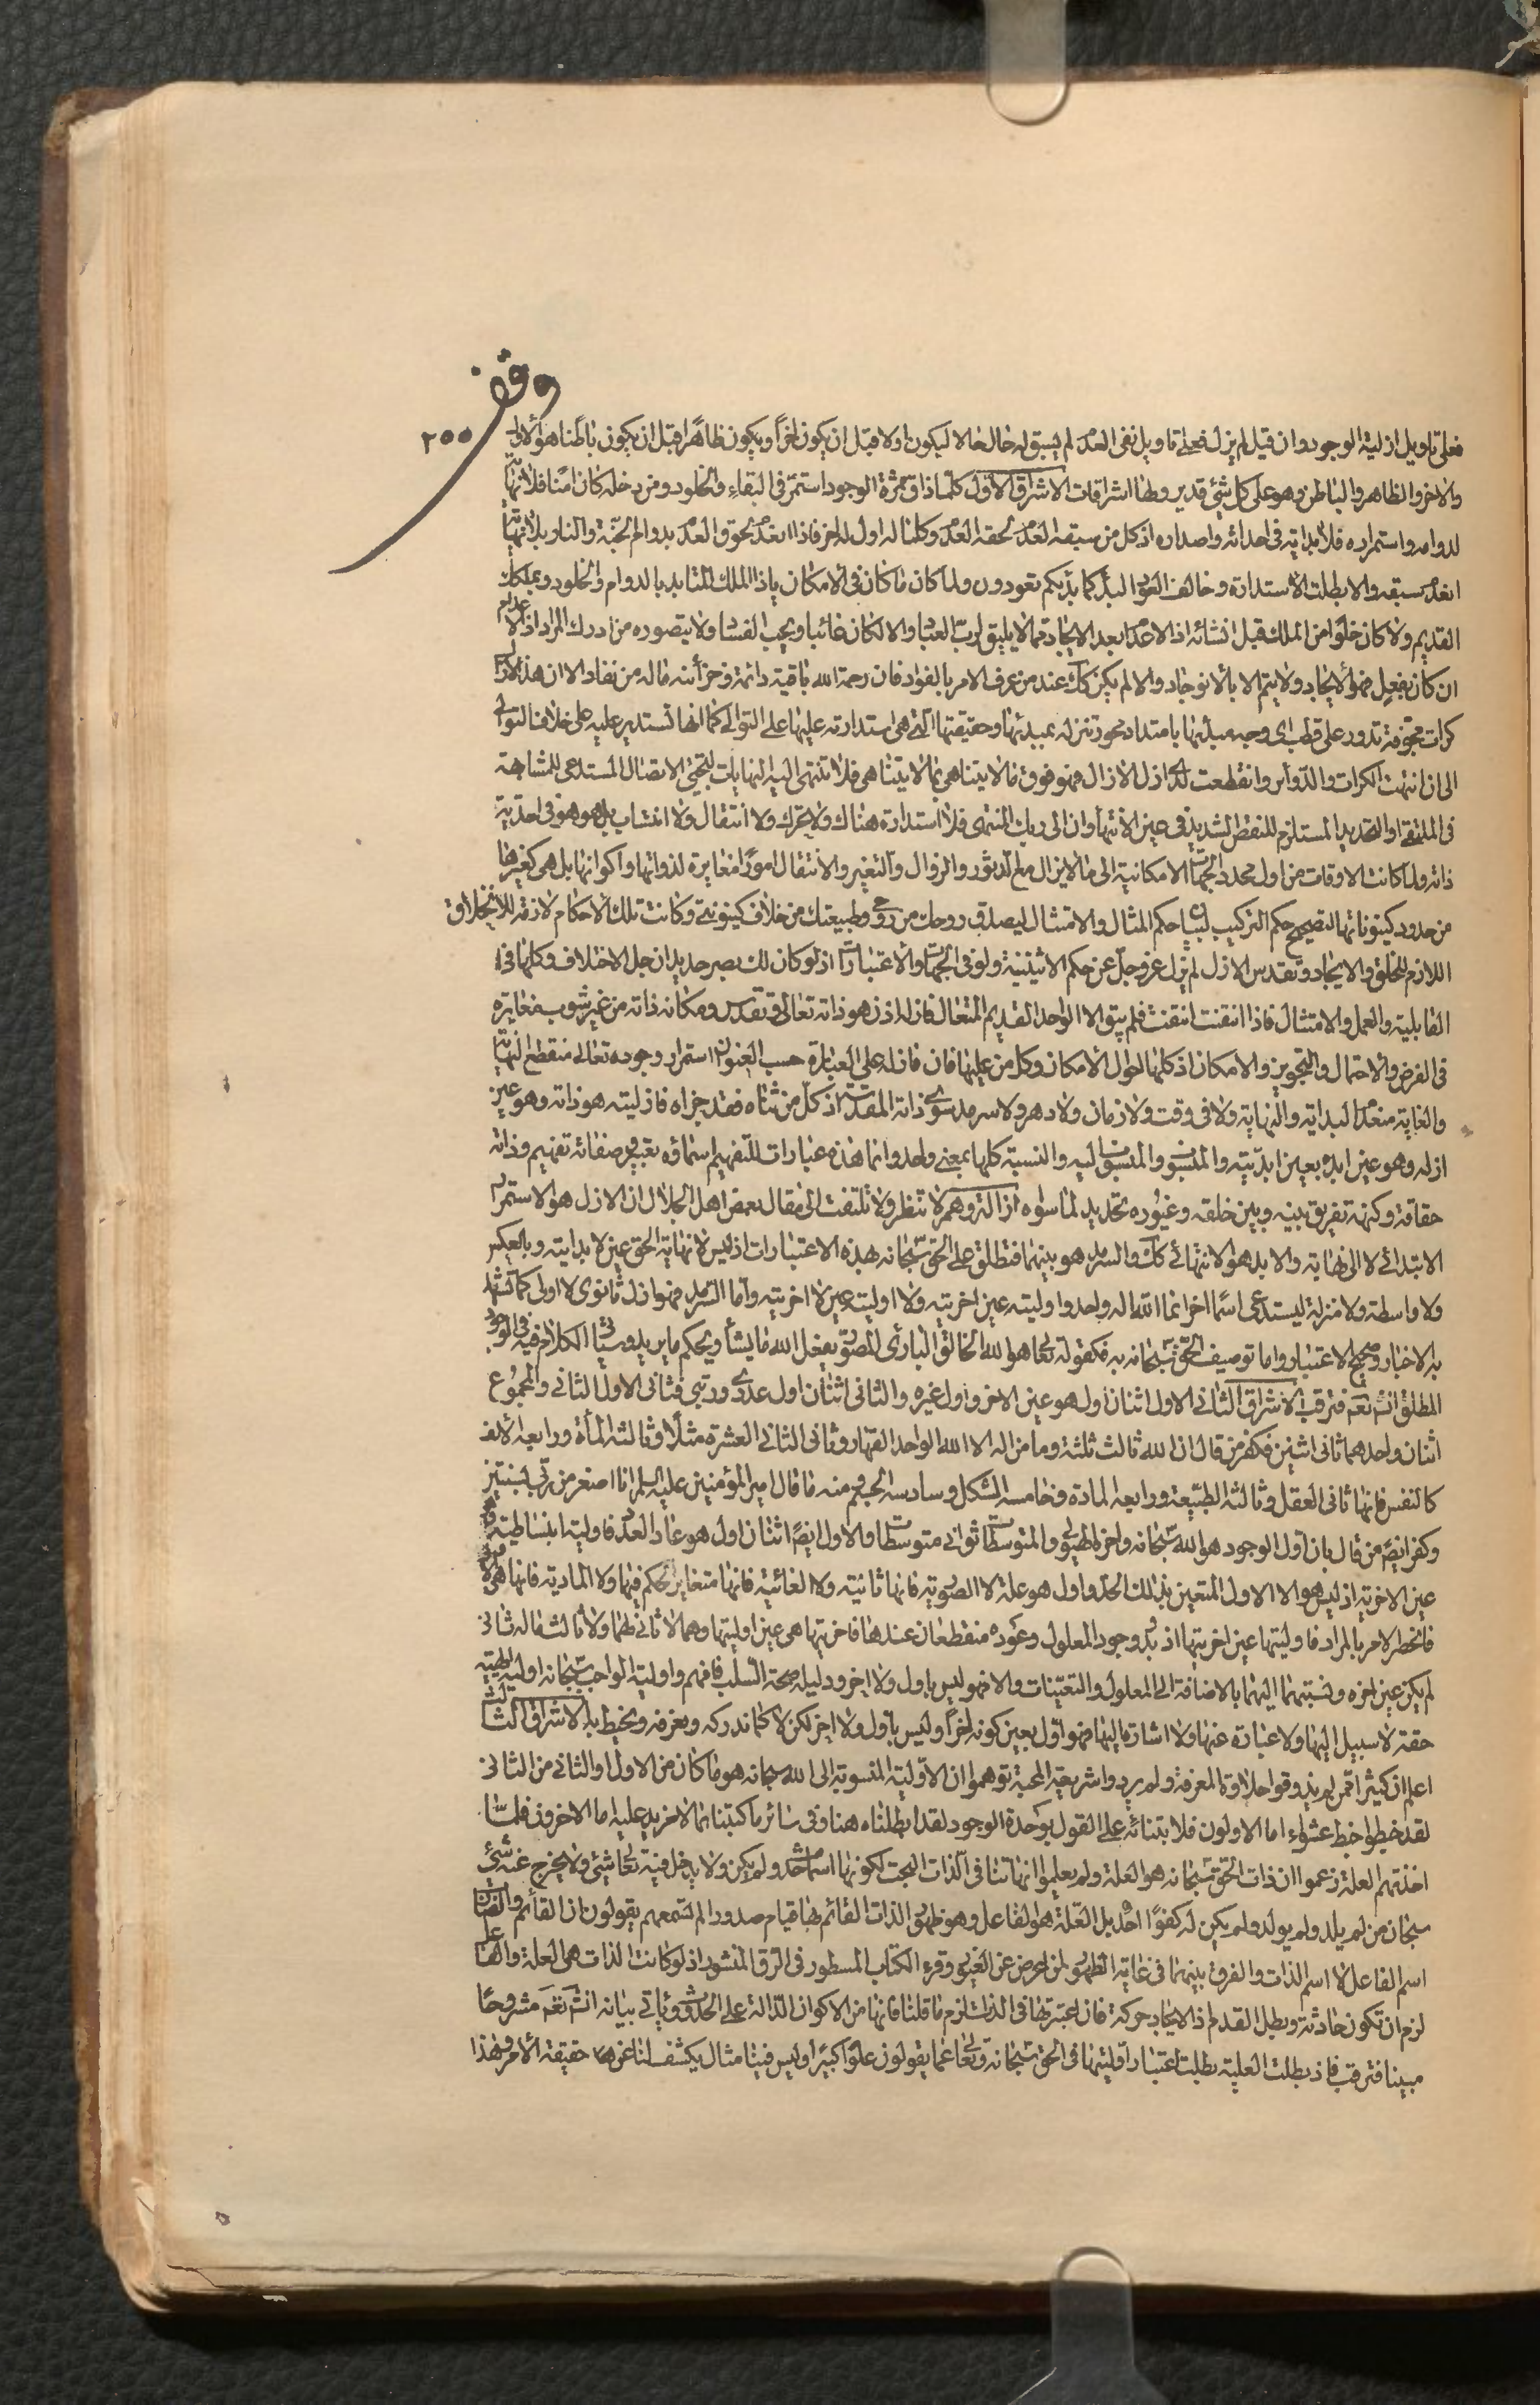 وقف
٢٠٠
فعلى تاويل ازلية الوجود وان قيل لم يزل فعلى تاويل نفى العدم لم يسبق له حال حالا ليكون اولا قبل ان يكون اخراً ويكون ظاهراً قبل ان يكون باطنا هو الاول
والاخر والظاهر والباطن وهو على كل شئ قدير وهنا اشراقات الاشراق الاول كلما ذاق ثمرة الوجود استمر فى البقاء والخلود ومن دخله كان امنا فلا نهاية
لدوامه واستمراره فلا بداية فى احداثه واصداره اذ كل من سبقه العدم لحقه العدم وكلما له اول له اخر فاذا انعدم لحوق العدم بدوام الجنة والنار بلا نهاية
انعدم سبقه والا بطلت الاستدارة وخالف العود البدء كما بدئكم تعودون ولما كان ما كان فى الامكان ياذا الملك المتابد بالدوام والخلود وبملكك
القديم ولا كان خلوا من الملك قبل انشائه اذ الاعدام بعد الايجاد مما لا يليق لرب العباد والا لكان عابثا ويحب الفساد ولا يتصوره من ادرك المراد اذ الاعدام
ان كان بفعل فهو الايجاد ولا يتم الا بالانوجاد والا لم يكن كك عند من عرف الامر بالفؤاد فان رحمة الله باقية دائمة وخزائنه ماله من نفاد الا ان هذه الادوار
كرات مجوفة تدور على قطب اى وجه مبدئها بامتداد محور تنزله بمبدئها وحقيقتها التى هى استدارته عليها على التوالى كما انها تستدير عليه على خلاف التوالى
الى ان انتهت الكرات والدوائر وانقطعت لدى ازل الازال فهو فوق ما لا يتناهى بما لا يتناهى فلا تنتهى اليه النهايات ليجئ الاتصال المستدعى للمشابهة
فى الملتقى او التحديد المستلزم للنقص الشديد فى عين الانتهاء وان الى ربك المنتهى فلا استدارة هناك ولا تحرك ولا انتقال ولا انتساب بل هو هو فى احدية
ذاته ولما كانت الاوقات من اول محدد الجهات الامكانية الى ما لا يزال ملح الدثور والزوال والتغير والانتقال امورا مغايرة لذواتها واكوانها بل هى كغيرها
من حدود كينوناتها لتصحيح حكم التركيب لبيان حكم المثال والامتثال ليصدق روحك من روحى وطبيعتك من خلاف كينونتى وكانت تلك الاحكام لازمة للانخلاق
اللازم للخلق والايجاد وتقدس الازل لم يزل عز وجل عن حكم الاثينية ولو فى الجهات والاعتبارات اذ لو كان لك بصر حديد ان جل الاختلاف وكلها فى
القابلية والعمل والامتثال فاذا انتفت انتفت فلم يبق الا الواحد القديم المتعال فازله اذن هو ذاته تعالى وتقدس ومكانه ذاته من غير شوب مغايرة
فى الفرض والاحتمال والتجويز والامكان اذ كلها احوال الامكان وكل من عليها فان فازله على العبارة حسب العنوان استمرار وجوده تعالى منقطع النهاية
والغاية منعدم البداية والنهاية ولا فى وقت ولا زمان ولا دهر ولا سرمد سوى ذاته المقدسة اذ كل من ثناه فقد جزاه فازليته هو ذاته وهو عين
ازله وهو عين ابده بعين ابديته والمنسوب والمنسوب اليه والنسبة كلها بمعنى واحد وانما هذه عبارات للتفهيم اسماؤه تعبير وصفاته تفهيم وذاته
حقاقة وكنهه تفريق بينه وبين خلقه وغيوره تحديد لما سواه ازالة وهم لا تنظر ولا تلتفت الى مقال بعض اهل الجدال ان الازل هو الاستمرار
الابتدائى لا الى نهاية والابد هو الانتهائى كك والسرمد هو بينهما فتطلق على الحق سبحانه بهذه الاعتبارات اذ ليس لانهاية الحق عين لا بدايته وبالعكس
ولا واسطة ولا منزلة ليستدعى اسما اخر انما الله اله واحد واوليته عين اخريته ولا اوليته عين لا اخريته واما السرمد فهو ازل ثانوى لا اولى كما تشهد
به الاخبار وصحيح الاعتبار واما توصيف الحق سبحانه به فكقوله تعالى هو الله الخالق البارئ المصور يفعل الله ما يشاء ويحكم ما يريد وسياتى الكلام فيه فى الوجود
المطلق انشاء الله تعالى فترقب الاشراق الثانى الاول اثنان اول هو عين الاخر واول غيره والثانى اثنان اول عددى ورتبى فثانى الاول الثانى والمجموع
اثنان واحدهما ثانى اثنين فكفر من قال ان الله ثالث ثلثة وما من اله الا الله الواحد القهار وثانى الثانى العشرة مثلا وثالثه المأة ورابعه الالف
كالنفس فانها ثانى العقل وثالثه الطبيعة ورابعه المادة وخامسه الشكل وسادسه الجسم ومنه ما قال امير المؤمنين عليه السلم انا اصغر من ربى بسنتين
وكفر ايضا من قال بان اول الوجود هو الله سبحانه واخره الهيولى والمتوسطات ثوانى متوسطات والاول ايضا اثنان اول هو عاد العدد فاوليته انبساطية
عين الاخرية اذ ليس هو الا الاول المتعين بذلك الحد واول هو علة لا الصورية فانها ثانية ولا الغائية فانها متغاير الحكم فيها ولا المادية فانها هى
فانحطر الامر بالمراد فاوليتها عين اخريتها اذ بدء وجود المعلول وعوده منقطعان عندها فاخريتها هى عين اوليتها وهما لا ثانى لهما ولا ثالث فما له ثانى
لم يكن عين اخره ونسبتهما اليهما بالاضافة الى المعلول والتعينات والا فهو ليس باول ولا اخر ودليله صحة السلب فافهم واولية الواجب سبحانه اولية الهية
حقة لا سبيل اليها ولا عبارة عنها ولا اشارة اليها فهو اول بعين كونه اخرا وليس باول ولا اخر لكن لا كما ندركه ونعرفه ونحيط به الاشراق الثالث
اعلم ان كثيرا ممن لم يذوقوا حلاوة المعرفة ولم يردوا شريعة المحبة توهموا ان الاولية المنسوبة الى الله سبحانه هو ما كان من الاول او الثانى من الثانى
لقد خبطوا خبط عشواء اما الاولون فلابتنائه على القول بوحدة الوجود لقد ابطلناه هنا وفى سائر ما كتبنا بما لا مزيد عليه اما الاخرون فلما
اخذتهم العلة زعموا ان ذات الحق سبحانه هو العلة ولم يعلموا انها تنافى الذات البحت لكونها اسما شئ حد ولم يكن ولا يدخل فيه تعالى شئ ولا يخرج عنه شئ
سبحان من لم يلد ولم يولد ولم يكن له كفوا احد بل العلة هو الفاعل وهو ظهور الذات القائم بها قيام صدور الم تسمعهم يقولون ان القائم والضارب
اسم الفاعل لا اسم الذات والفرق بينهما فى غاية الظهور لمن اعرض عن الغير وقرء الكتاب المسطور فى الرق المنشور اذ لو كانت الذات هى العلة والفاعل
لزم ان تكون حادثة وبطل القدم اذ الايجاد حركة فان اعتبرتها فى الذات لزم ما قلنا فانها من الاكوان الدالة على الحدوث وياتى بيانه انشاء الله تعالى مشروحا
مبينا فترقب فاذ بطلت العلية بطلت اعتبار اوليتها فى الحق سبحانه وتعالى عما يقولون علوا كبيرا وليس فينا مثال يكشف لنا عن هذا حقيقة الامر وهذا